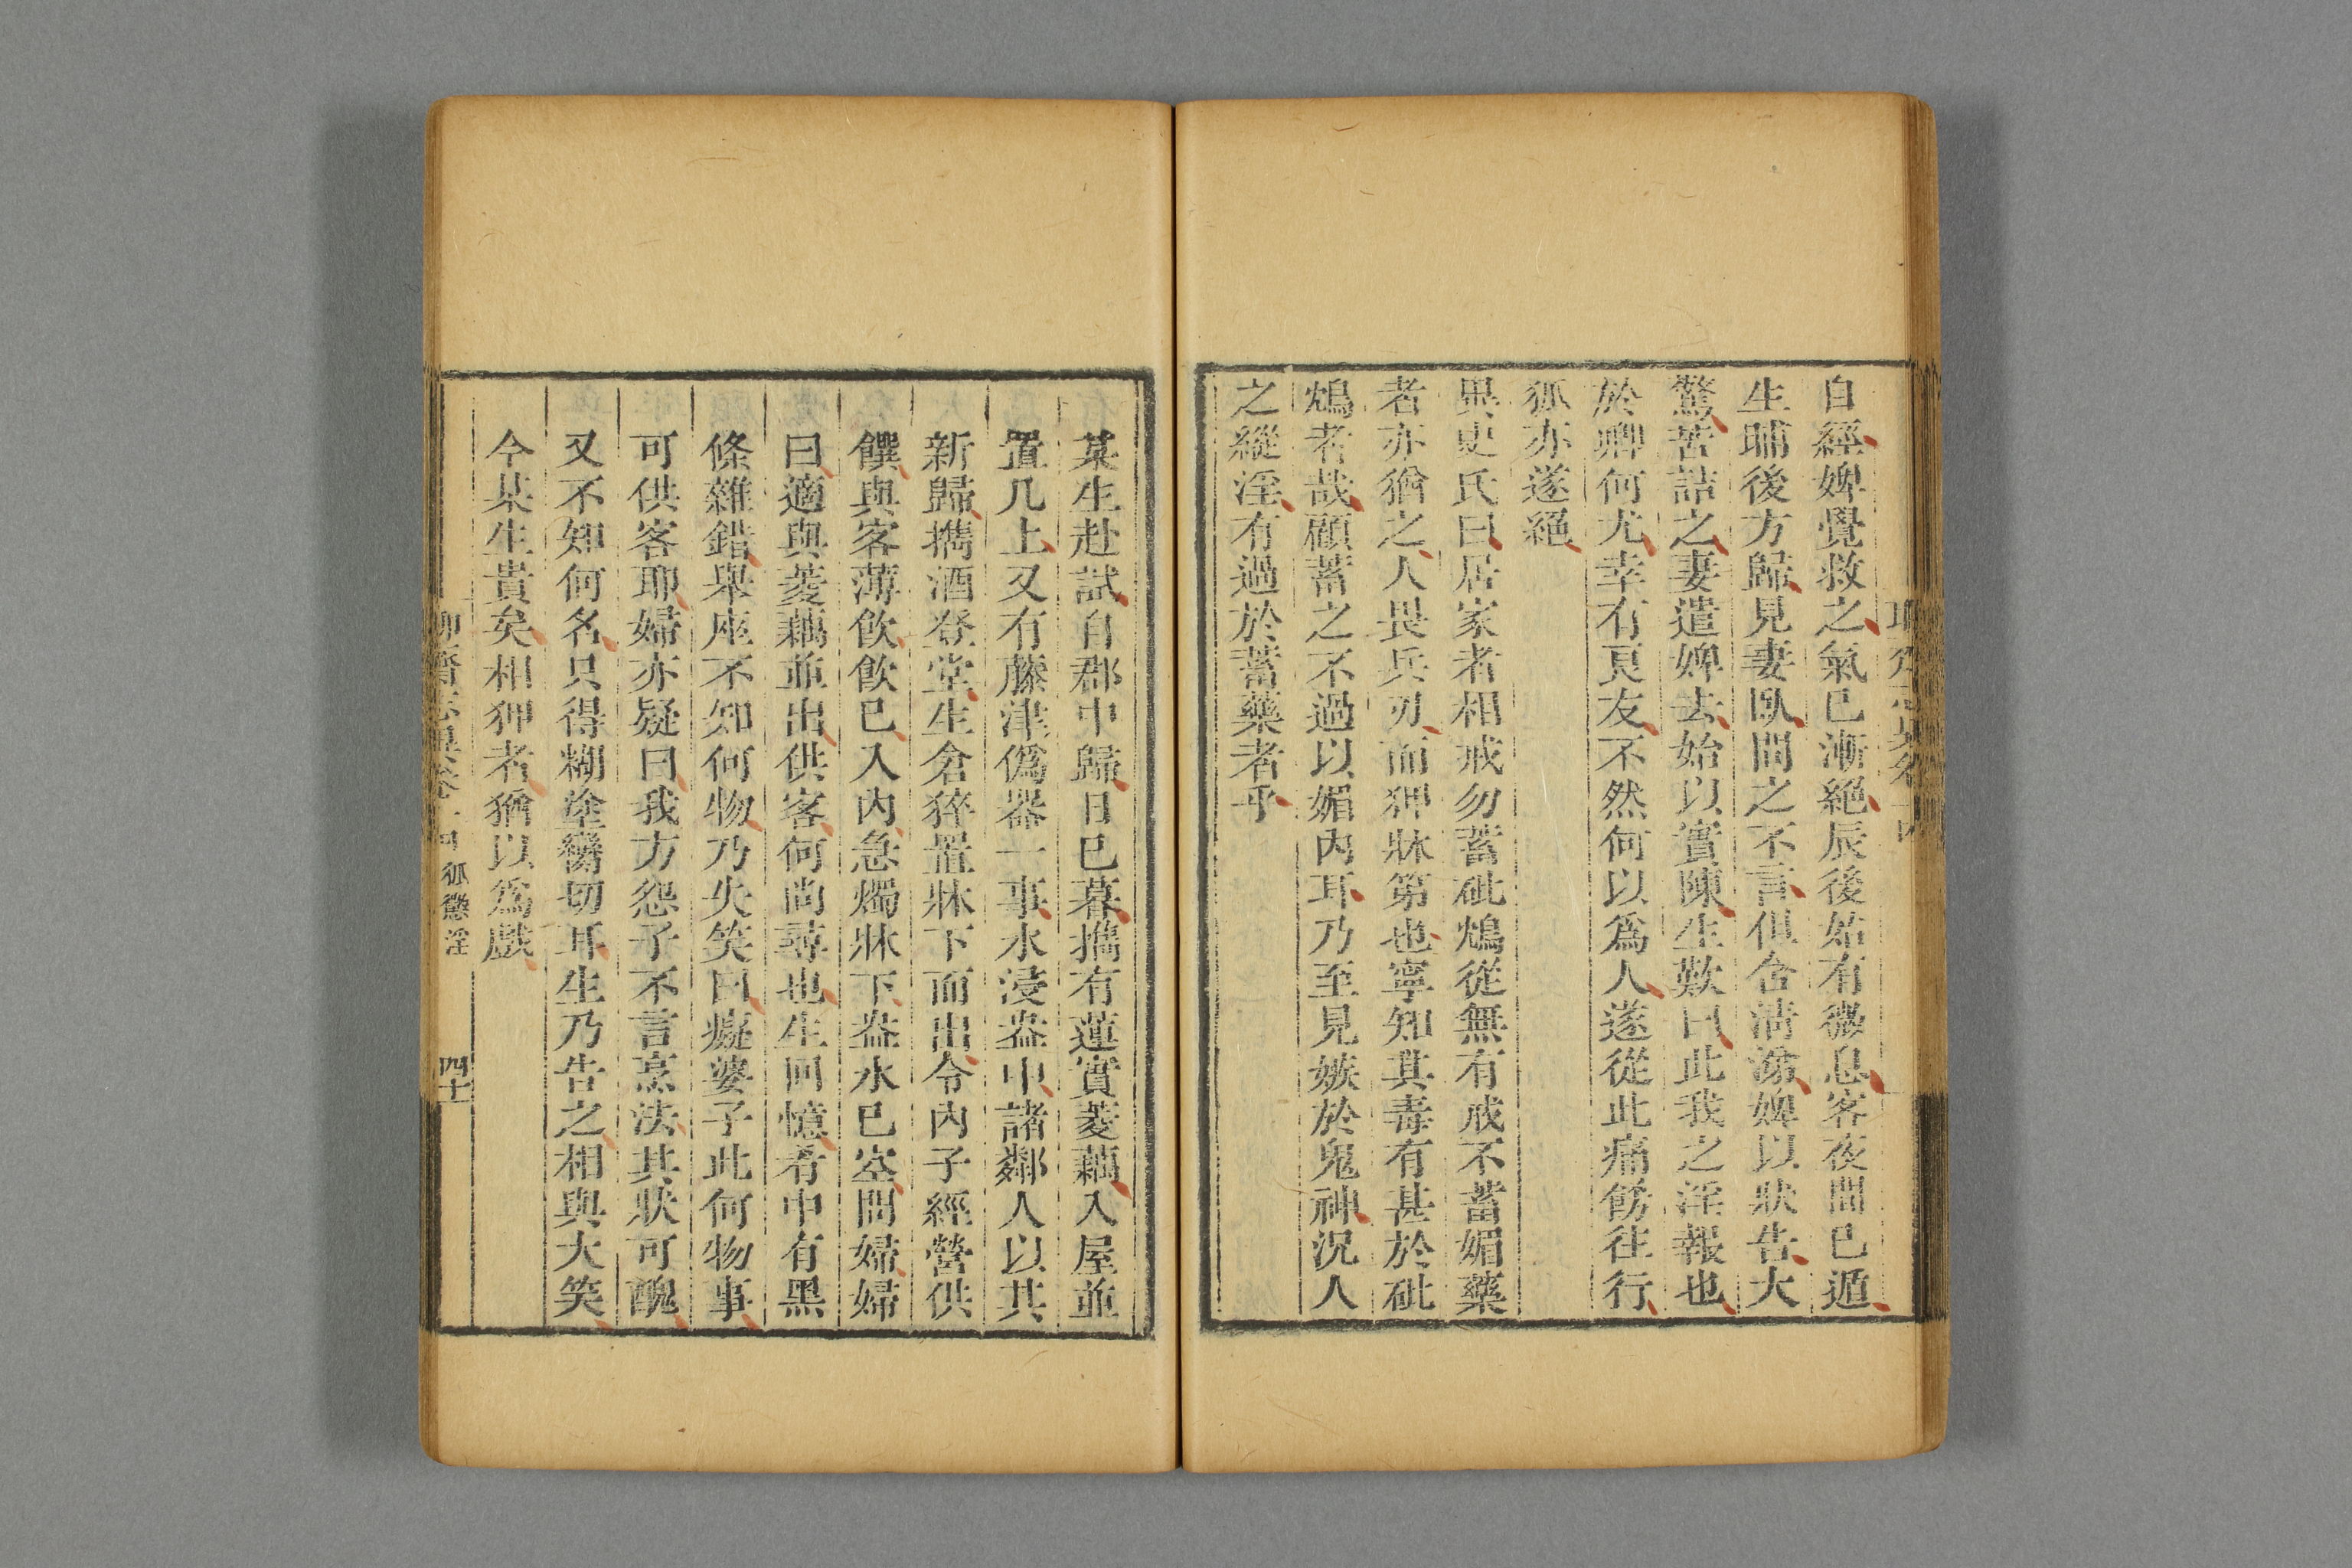 自經婢覺救之氣已漸絕辰後始有微息客夜間已遁
生晡後方歸見妻臥問之不言但含清涕婢以狀告大
驚苦詰之妻遣婢去始以實陳生歎曰此我之淫報也
於卿何尤幸有良友不然何以為人遂從此痛飭往行
狐亦遂絕
異史氏曰居家者相戒勿蓄砒鴆從無有戒不蓄媚藥
者亦猶之人畏兵刃而狎牀第也寧知其毒有甚於砒
鴆者哉顧蓄之不過以媚內耳乃至見嫉於鬼神況人
之縱淫有過於蓄藥者乎
某生赴試自郡中歸日已暮攜有蓮實菱藕入屋並
置几上又有藤津偽器一事水浸盎中諸鄰人以其
新歸攜酒登堂生倉猝置牀下而出令內子經營供
饌與客薄飲飲已入內急燭牀下盎水已空問婦婦
曰適與菱藕並出供客何尚尋也生回憶肴中有黑
條雜錯舉座不知何物乃失笑曰癡婆子此何物事
可供客耶婦亦疑曰我方怨子不言烹法其狀可醜
又不知何名只得糊塗臠切耳生乃告之相與大笑
今某生貴矣相狎者猶以為戲
狐懲淫
四十